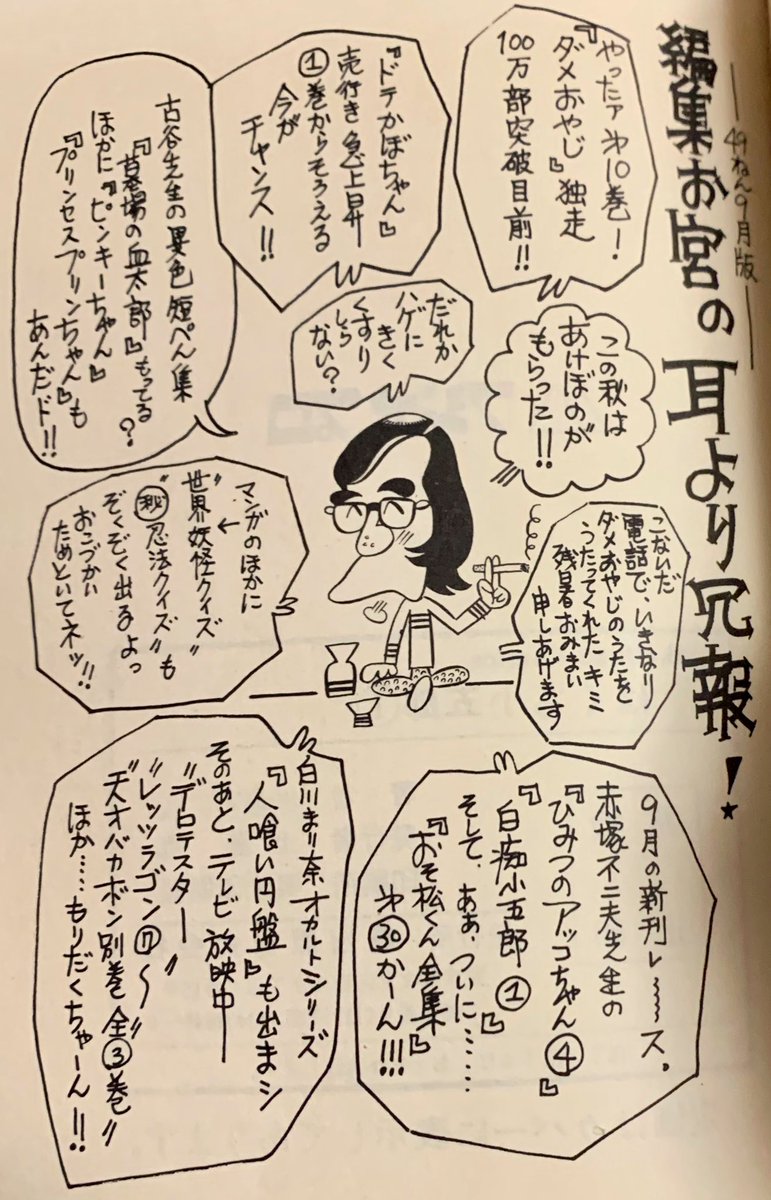 編集お宮の耳より冗報!
49ねん9月版
やったァ 㐧10巻!
『ダメおやじ』独走
100万部突破目前!!
『ドテかぼちゃん』
売行き急上昇
①巻からそろえる
今が
チャンス!!
古谷先生の異色短ぺん集
『墓場の血太郎』もってる?
ほかに『ピンキーちゃん』
『プリンセスプリンちゃん』も
あんだド!!
この秋は
あけぼのが
もらった!!
だれか
ハゲに
きく
くすり
しら
ない?
こないだ
電話で、いきなり
ダメおやじのうたを
うたってくれたキミ
残暑おみまい
申しあげます
マンガのほかに
"世界妖怪クイズ"
"㊙忍法クイズ"も
ぞくぞく出るよっ
おこづかい
ためといてネッ!!
9月の新刊レ〜〜ス。
赤塚不二夫先生の
『ひみつのアッコちゃん④』
『白痴小五郎①』
そして、ああ、ついに……
『おそ松くん全集』
㐧㉚かーん!!!
白川まり奈オカルトシリーズ
『人喰い円盤』も出まシ
そのあと、テレビ放映中─
"デロテスター"
"レッツラゴン⑪〜"
"天才バカボン別巻全③巻"
ほか……もりだくちゃーん!!